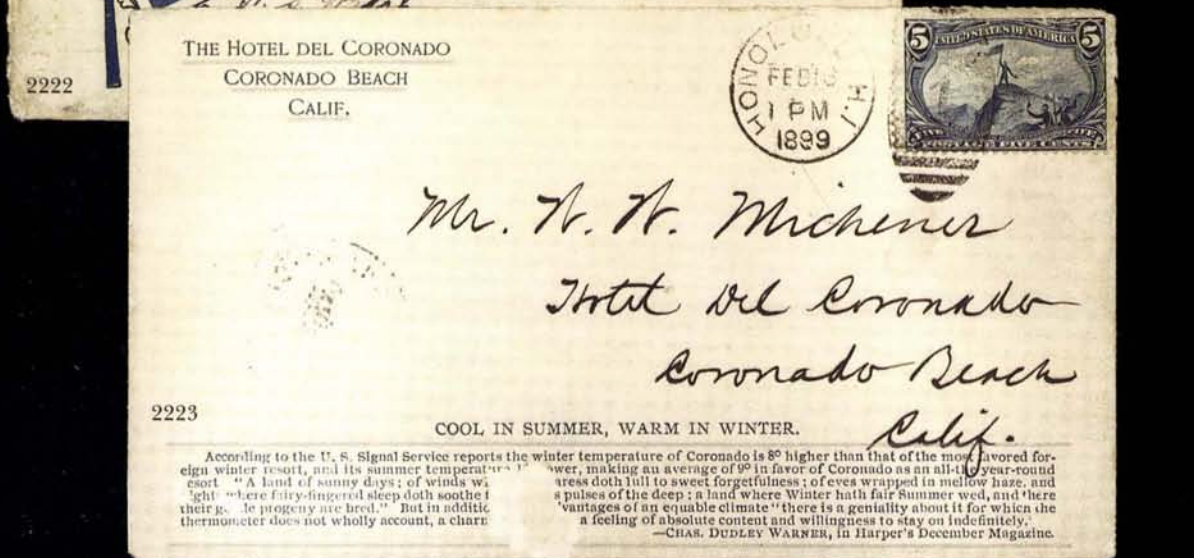 2222
THE HOTEL DEL CORONADO
CORONADO BEACH
CALIF.
HONOLULU H.I.
FEB
1 PM
1899
5 UNITED STATES OF AMERICA 5
POSTAGE FIVE CENTS
Mr. W. W. Michener
Hotel Del Coronado
Coronado Beach
Calif.
2223
COOL IN SUMMER, WARM IN WINTER.
According to the U. S. Signal Service reports the winter temperature of Coronado is 8° higher than that of the most favored for-
eign winter resort, and its summer temperature ower, making an average of 9° in favor of Coronado as an all-the year-round
esort "A land of sunny days; of winds w aress doth lull to sweet forgetfulness; of eves wrapped in mellow haze, and
ight where fairy-fingered sleep doth soothe t s pulses of the deep; a land where Winter hath fair Summer wed, and here
their g le progeny are bred." But in additio vantages of an equable climate "there is a geniality about it for which the
thermometer does not wholly account, a charm a feeling of absolute content and willingness to stay on indefinitely.'
—CHAS. DUDLEY WARNER, in Harper's December Magazine.